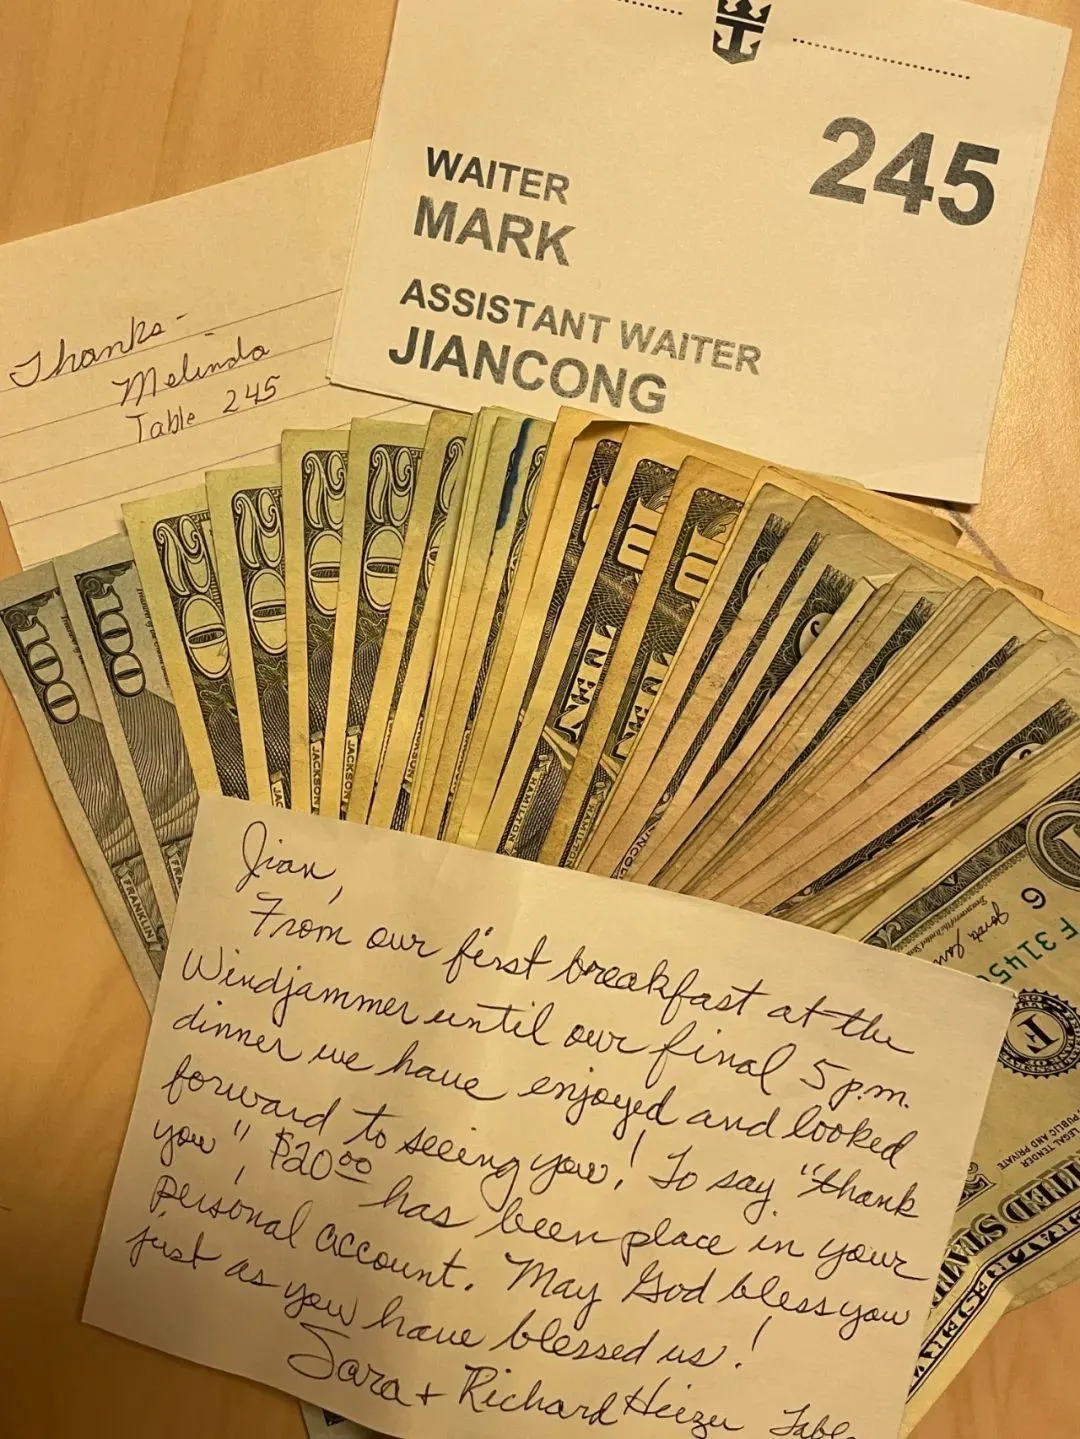 245
WAITER
MARK
ASSISTANT WAITER
JIANCONG
Thanks-
Melinda
Table 245
100
100
20
20
20
20
20
10
10
JACKSON
JACKSON
HAMILTON
HAMILTON
FRANKLIN
Jian,
From our first breakfast at the
Windjammer until our final 5 p.m.
dinner we have enjoyed and looked
forward to seeing you! To say "thank
you", $20.00 has been place in your
personal account. May God bless you
just as you have blessed us!
Sara + Richard
F